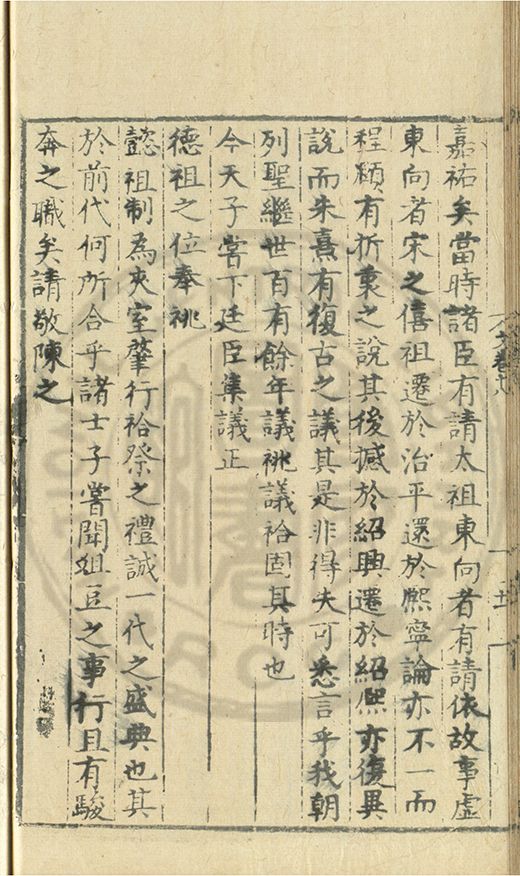 嘉祐矣當時諸臣有請太祖東向者有請依故事虛
東向者宋之僖祖遷於治平還於熙寧論亦不一而
程頥有折衷之說其後撼於紹興遷於紹熙亦復異
說而朱熹有復古之議其是非得失可悉言乎我朝
列聖繼世百有餘年議祧議祫固其時也
今天子嘗下廷臣集議正
德祖之位奉祧
懿祖制為夾室肇行祫祭之禮誠一代之盛典也其
於前代何所合乎諸士子嘗聞俎豆之事行且有駿
奔之職矣請敬陳之